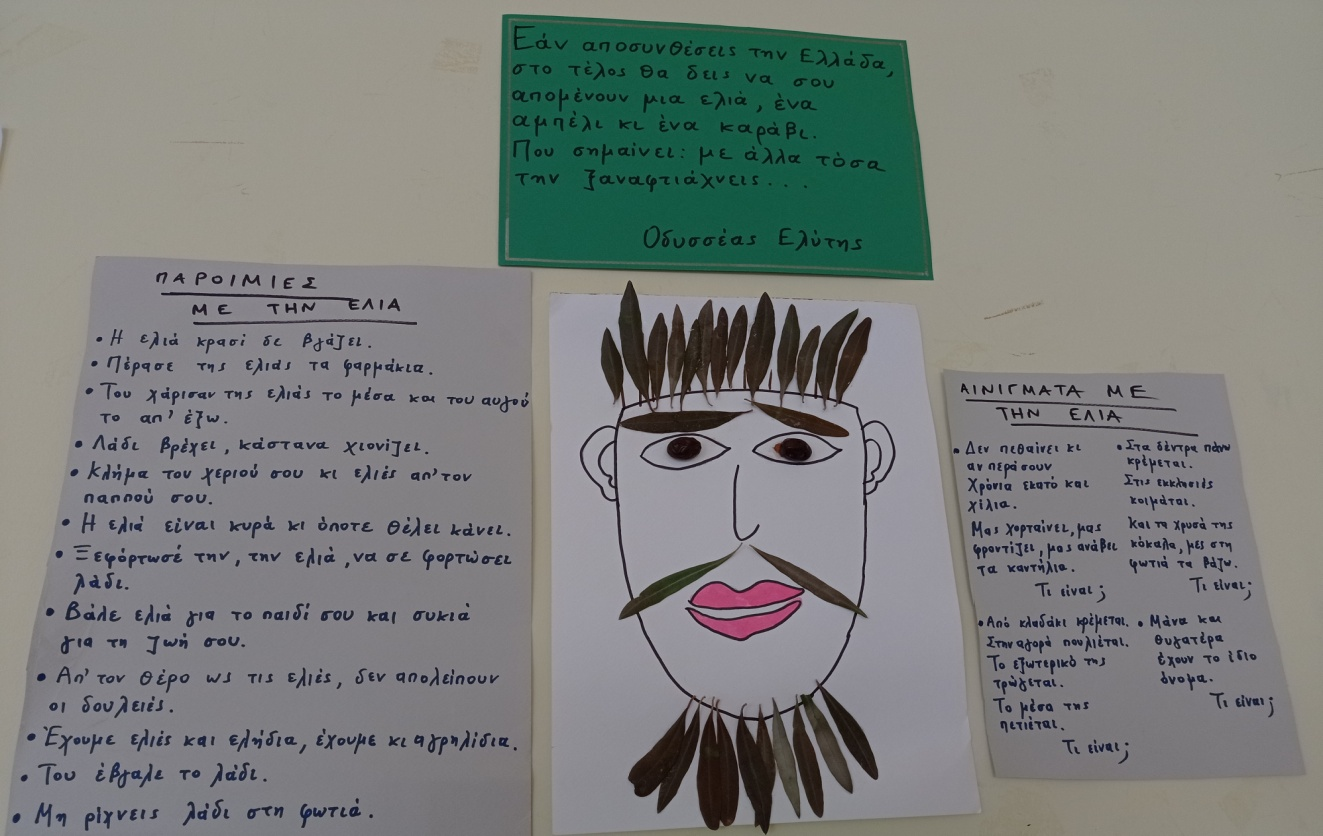 Εάν αποσυνθέσεις την Ελλάδα,
στο τέλος θα δεις να σου
απομένουν μια ελιά, ένα
αμπέλι κι ένα καράβι.
Που σημαίνει: με άλλα τόσα
την ξαναφτιάχνεις...
Οδυσσέας Ελύτης
ΠΑΡΟΙΜΙΕΣ
ΜΕ ΤΗΝ ΕΛΙΑ
• Η ελιά κρασί δε βγάζει.
• Πέρασε της ελιάς τα φαρμάκια.
• Του χάρισαν της ελιάς το μέσα και του αυγού
το απ' έξω.
• Λάδι βρέχει, κάστανα χιονίζει.
• Κλήμα του χεριού σου κι ελιές απ' τον
παππού σου.
• Η ελιά είναι κυρά κι όποτε θέλει κάνει.
• Ξεφόρτωσέ την, την ελιά, να σε φορτώσει
λάδι.
• Βάλε ελιά για το παιδί σου και συκιά
για τη ζωή σου.
• Απ' τον θέρο ως τις ελιές, δεν απολείπουν
οι δουλειές.
• Έχουμε ελιές και ελήδια, έχουμε κι αγρηλίδια.
• Του έβγαλε το λάδι.
• Μη ρίχνεις λάδι στη φωτιά.
ΑΙΝΙΓΜΑΤΑ ΜΕ
ΤΗΝ ΕΛΙΑ
• Δεν πεθαίνει κι
αν περάσουν
Χρόνια εκατό και
χίλια.
Μας χορταίνει, μας
φροντίζει, μας ανάβει
τα καντήλια.
Τι είναι;
• Στα δέντρα πάνω
κρέμεται.
Στις εκκλησιές
κοιμάται.
Και τα χρυσά της
κόκαλα, μες στη
φωτιά τα βάζω.
Τι είναι;
• Από κλαδάκι κρέμεται.
Στην αγορά πουλιέται.
Το εξωτερικό της
τρώγεται.
Το μέσα της
πετιέται.
Τι είναι;
• Μάνα και
θυγατέρα
έχουν το ίδιο
όνομα.
Τι είναι;